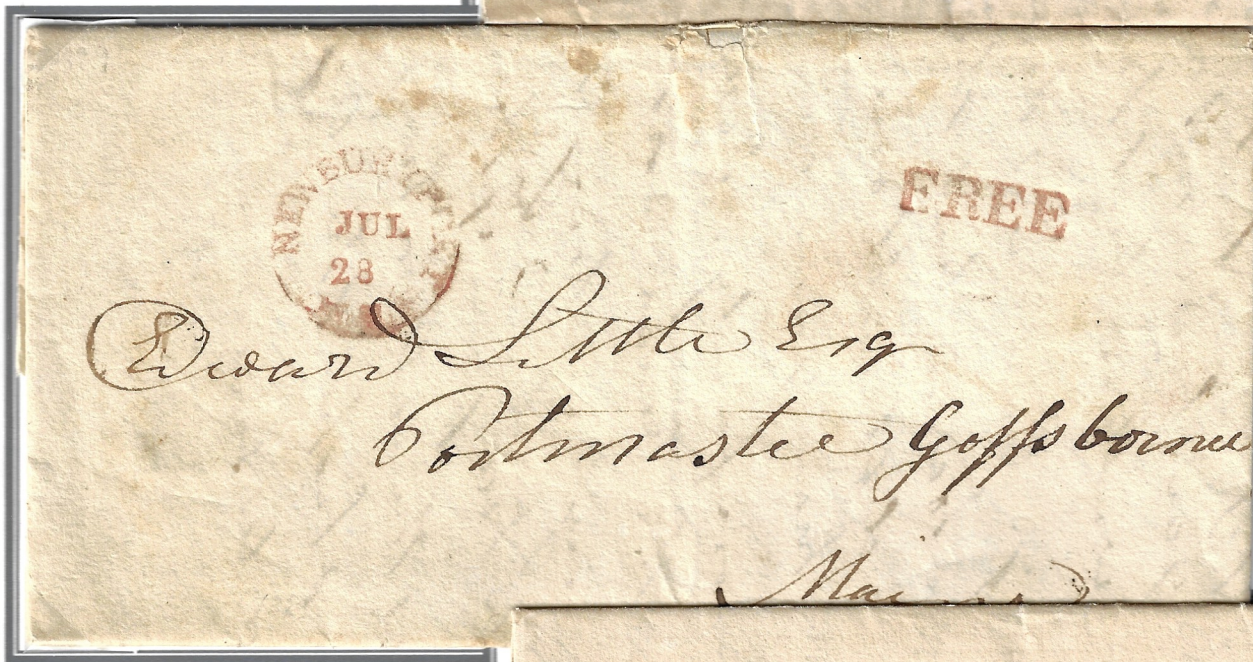 NEWBURYPORT
JUL
28
MS
FREE
Edward Little Esq
Postmaster Goffs borner
Maine